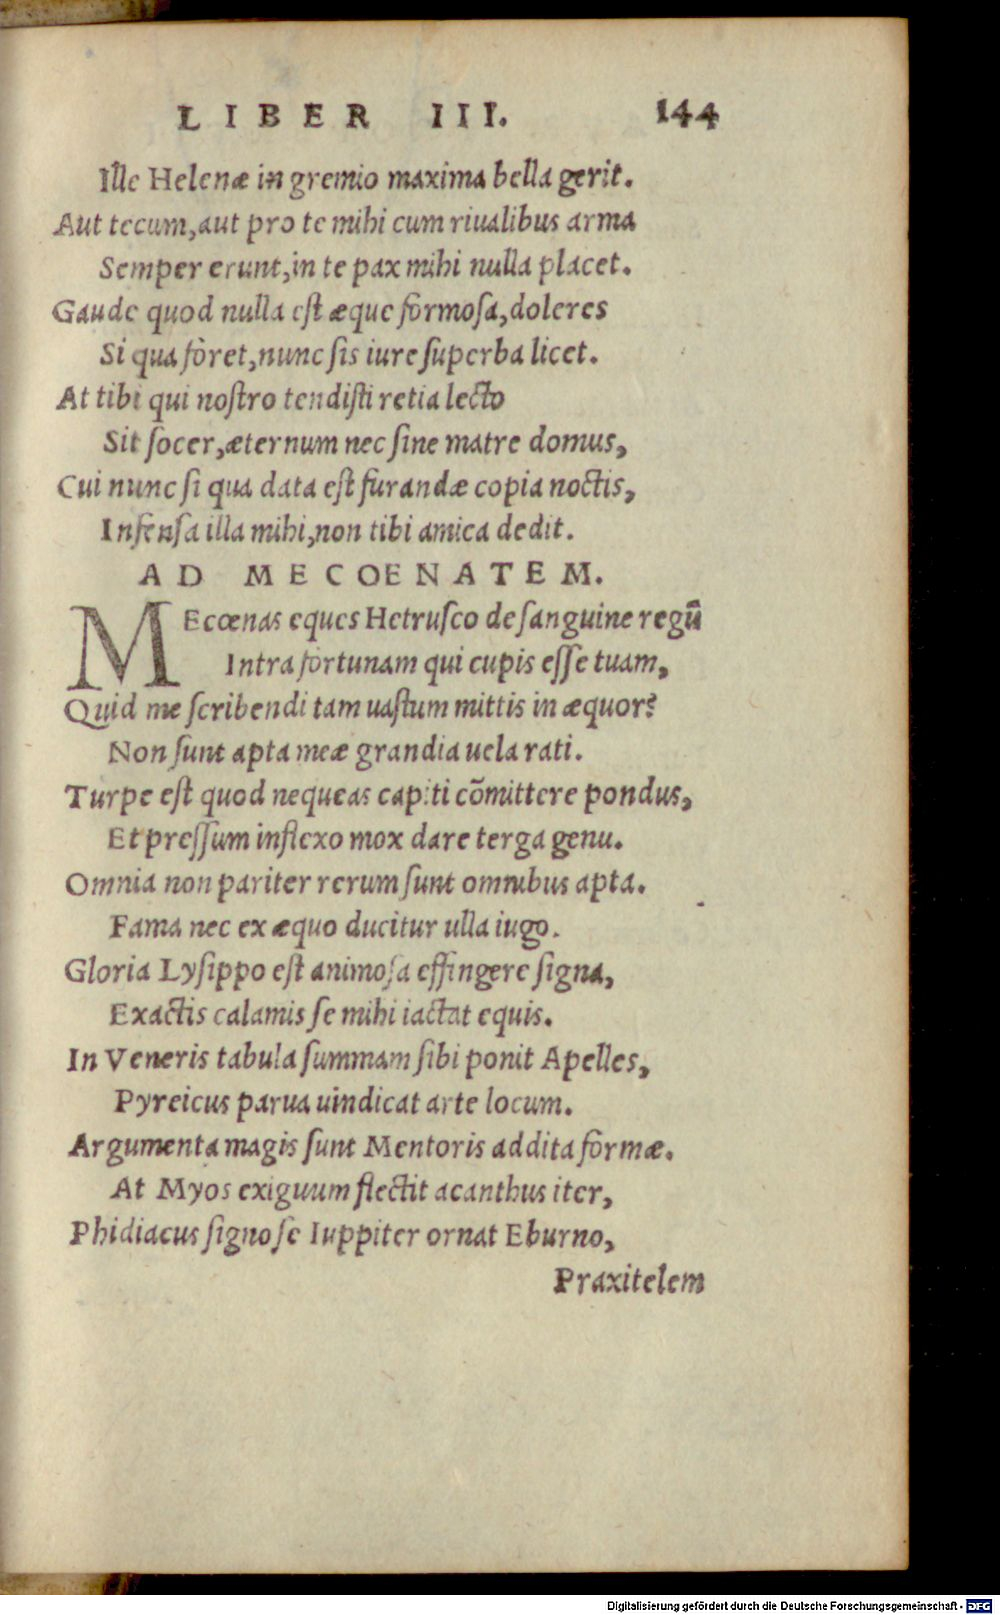 LIBER III. 144
Ille Helenæ in gremio maxima bella gerit.
Aut tecum,aut pro te mihi cum riualibus arma
Semper erunt,in te pax mihi nulla placet.
Gaude quod nulla est æque formosa,doleres
Si qua foret,nunc sis iure superba licet.
At tibi qui nostro tendisti retia lecto
Sit socer,æternum nec sine matre domus,
Cui nunc si qua data est furandæ copia noctis,
Infensa illa mihi,non tibi amica dedit.
AD MECOENATEM.
MEcœnas eques Hetrusco de sanguine regũ
Intra fortunam qui cupis esse tuam,
Quid me scribendi tam uastum mittis in æquor?
Non sunt apta meæ grandia uela rati.
Turpe est quod nequeas capiti cõmittere pondus,
Et pressum inflexo mox dare terga genu.
Omnia non pariter rerum sunt omnibus apta.
Fama nec ex æquo ducitur ulla iugo.
Gloria Lysippo est animosa effingere signa,
Exactis calamis se mihi iactat equis.
In Veneris tabula summam sibi ponit Apelles,
Pyreicus parua uindicat arte locum.
Argumenta magis sunt Mentoris addita formæ.
At Myos exiguum flectit acanthus iter,
Phidiacus signo se Iuppiter ornat Eburno,
Praxitelem
Digitalisierung gefördert durch die Deutsche Forschungsgemeinschaft - DFG